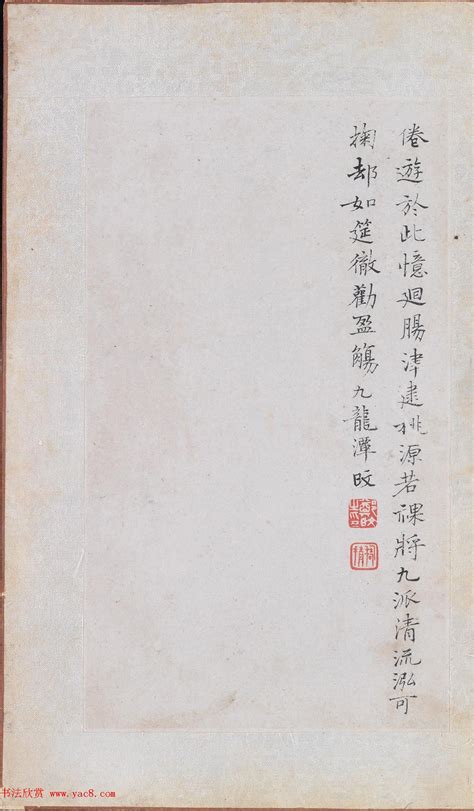 倦遊於此憶迴腸津逮桃源若裸將九派清流泓可
掬却如筵徹勸盈觴九龍潭旼
書法欣賞 www.yac8.com